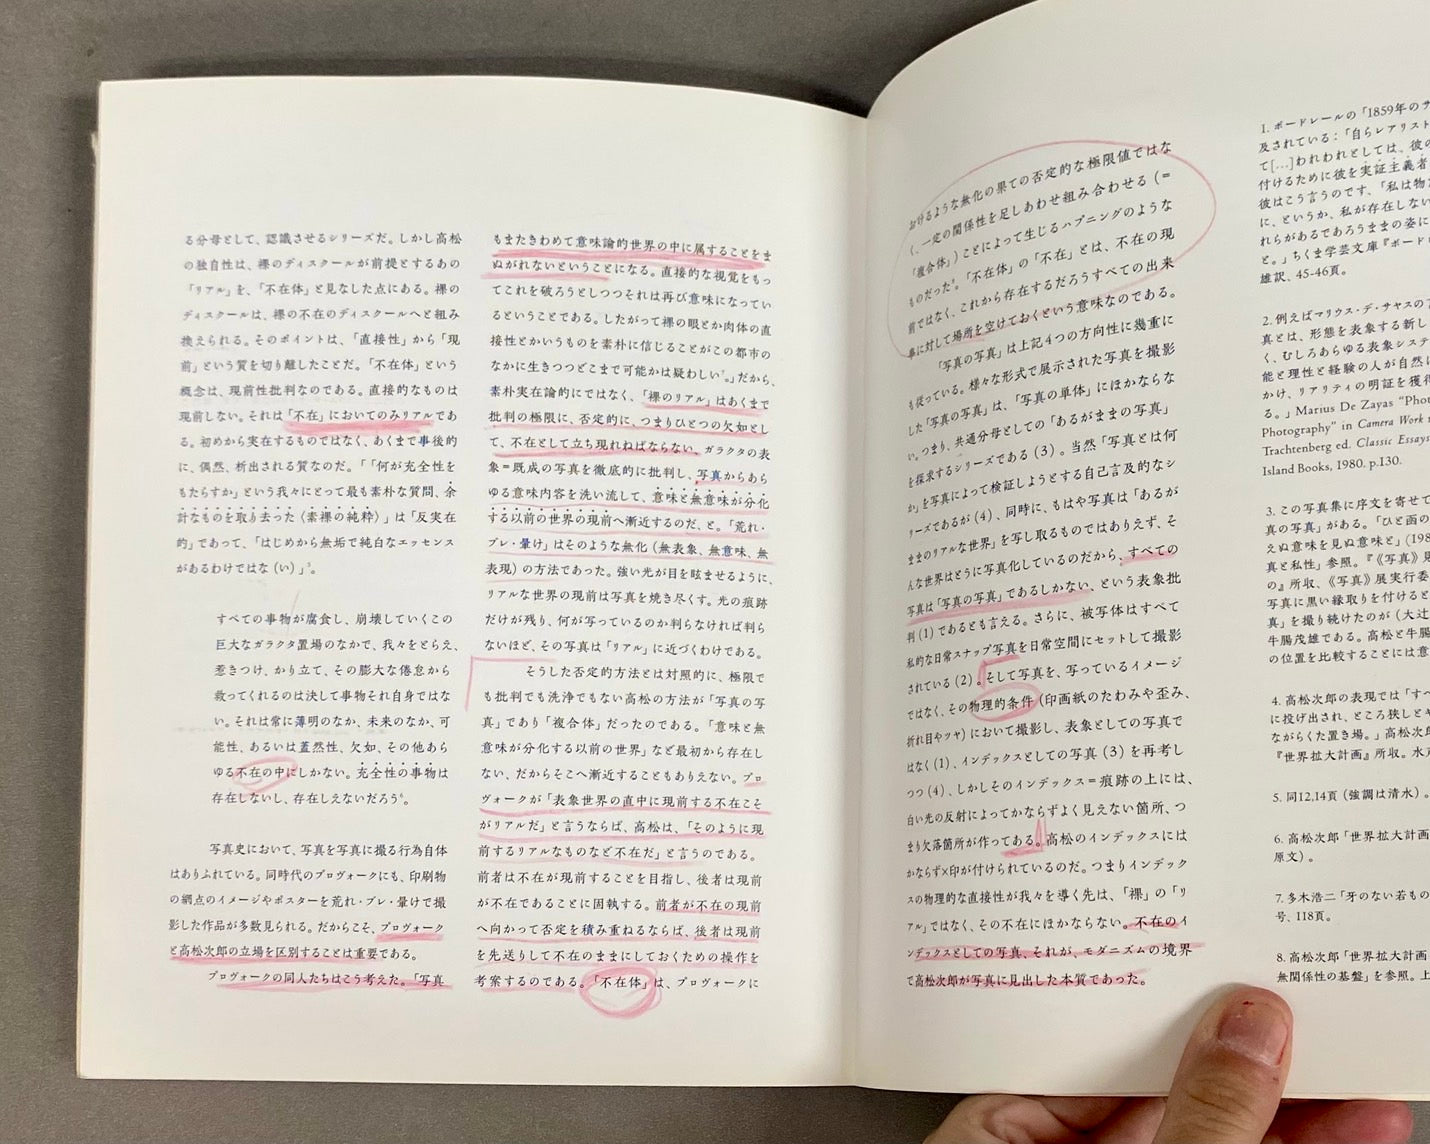 る分母として、認識させるシリーズだ。しかし高松
の独自性は、裸のディスクールが前提とするあの
「リアル」を、「不在体」と見なした点にある。裸の
ディスクールは、裸の不在のディスクールへと組み
換えられる。そのポイントは、「直接性」から「現
前」という質を切り離したことだ。「不在体」という
概念は、現前性批判なのである。直接的なものは
現前しない。それは「不在」においてのみリアルであ
る。初めから実在するものではなく、あくまで事後的
に、偶然、析出される質なのだ。「「何が充全性を
もたらすか」という我々にとって最も素朴な質問、余
計なものを取り去った〈素裸の純粋〉」は「反実在
的」であって、「はじめから無垢で純白なエッセンス
があるわけではな（い）」5。
すべての事物が腐食し、崩壊していくこの
巨大なガラクタ置場のなかで、我々をとらえ、
惹きつけ、かり立て、その膨大な倦怠から
救ってくれるのは決して事物それ自身ではな
い。それは常に薄明のなか、未来のなか、可
能性、あるいは蓋然性、欠如、その他あら
ゆる不在の中にしかない。充全性の事物は
存在しないし、存在しえないだろう6。
写真史において、写真を写真に撮る行為自体
はありふれている。同時代のプロヴォークにも、印刷物
の網点のイメージやポスターを荒れ・ブレ・暈けで撮
影した作品が多数見られる。だからこそ、プロヴォーク
と高松次郎の立場を区別することは重要である。
プロヴォークの同人たちはこう考えた。「写真
もまたきわめて意味論的世界の中に属することをま
ぬがれないということになる。直接的な視覚をもっ
てこれを破ろうとしつつそれは再び意味になってい
るということである。したがって裸の眼とか肉体の直
接性とかいうものを素朴に信じることがこの都市の
なかに生きつつどこまで可能かは疑わしい7。」だから、
素朴実在論的にではなく、「裸のリアル」はあくまで
批判の極限に、否定的に、つまりひとつの欠如とし
て、不在として立ち現れねばならない。ガラクタの表
象＝既成の写真を徹底的に批判し、写真からあら
ゆる意味内容を洗い流して、意味と無意味が分化
する以前の世界の現前へ漸近するのだ、と。「荒れ・
ブレ・暈け」はそのような無化（無表象、無意味、無
表現）の方法であった。強い光が目を眩ませるように、
リアルな世界の現前は写真を焼き尽くす。光の痕跡
だけが残り、何が写っているのか判らなければ判ら
ないほど、その写真は「リアル」に近づくわけである。
そうした否定的方法とは対照的に、極限で
も批判でも洗浄でもない高松の方法が「写真の写
真」であり「複合体」だったのである。「意味と無
意味が分化する以前の世界」など最初から存在し
ない、だからそこへ漸近することもありえない。プロ
ヴォークが「表象世界の直中に現前する不在こそ
がリアルだ」と言うならば、高松は、「そのように現
前するリアルなものなど不在だ」と言うのである。
前者は不在が現前することを目指し、後者は現前
が不在であることに固執する。前者が不在の現前
へ向かって否定を積み重ねるならば、後者は現前
を先送りして不在のままにしておくための操作を
考案するのである。「不在体」は、プロヴォークに
おけるような無化の果ての否定的な極限値ではな
く、一定の関係性を足しあわせ組み合わせる（＝
「複合体」）ことによって生じるハプニングのような
ものだった8。「不在体」の「不在」とは、不在の現
前ではなく、これから存在するだろうすべての出来
事に対して場所を空けておくという意味なのである。
「写真の写真」は上記4つの方向性に幾重に
も従っている。様々な形式で展示された写真を撮影
した「写真の写真」は、「写真の単体」にほかならな
い。つまり、共通分母としての「あるがままの写真」
を探求するシリーズである（3）。当然「写真とは何
か」を写真によって検証しようとする自己言及的なシ
リーズであるが（4）、同時に、もはや写真は「あるが
ままのリアルな世界」を写し取るものではありえず、そ
んな世界はとうに写真化しているのだから、すべての
写真は「写真の写真」であるしかない、という表象批
判（1）であるとも言える。さらに、被写体はすべて
私的な日常スナップ写真を日常空間にセットして撮影
されている（2）。そして写真を、写っているイメージ
ではなく、その物理的条件（印画紙のたわみや歪み、
折れ目やツヤ）において撮影し、表象としての写真で
はなく（1）、インデックスとしての写真（3）を再考し
つつ（4）、しかしそのインデックス＝痕跡の上には、
白い光の反射によってかならずよく見えない箇所、つ
まり欠落箇所が作ってある。高松のインデックスには
かならず×印が付けられているのだ。つまりインデック
スの物理的な直接性が我々を導く先は、「裸」の「リ
アル」ではなく、その不在にほかならない。不在のイ
ンデックスとしての写真、それが、モダニズムの境界
で高松次郎が写真に見出した本質であった。
1. ボードレールの「1859年のサ
及されている：「自らレアリスト
て[…]われわれとしては、彼の
付けるために彼を実証主義者
彼はこう言うのです、「私は物
に、というか、私が存在しない
れらがあるであろうままの姿に
と。」ちくま学芸文庫『ボードレ
雄訳、45-46頁。
2. 例えばマリウス・デ・サヤスの言
真とは、形態を表象する新し
く、むしろあらゆる表象システ
能と理性と経験の人が自然に
かけ、リアリティの明証を獲得
る。」Marius De Zayas “Photo
Photography” in Camera Work
Trachtenberg ed. Classic Essays
Island Books, 1980. p.130.
3. この写真集に序文を寄せて
真の写真」がある。「ひと函の
えぬ意味を見ぬ意味と」(198
真と私性」参照。『《写真》見
の』所収、《写真》展実行委
写真に黒い縁取りを付けると
真」を撮り続けたのが（大辻
牛腸茂雄である。高松と牛腸
の位置を比較することには意
4. 高松次郎の表現では「すべ
に投げ出され、ところ狭しとギ
ながらくた置き場。」高松次郎
『世界拡大計画』所収。水戸
5. 同12,14頁（強調は清水）。
6. 高松次郎「世界拡大計画
原文）。
7. 多木浩二「牙のない若もの
号、118頁。
8. 高松次郎「世界拡大計画
無関係性の基盤」を参照。上